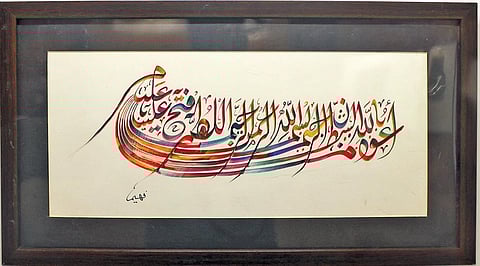 أعوذ بالله من الشيطان الرجيم بسم الله الرحمن الرحيم اللهم افتح علينا